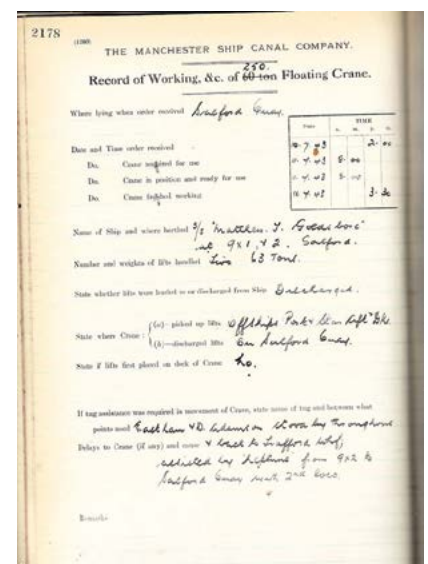 2178
THE MANCHESTER SHIP CANAL COMPANY.
250.
Record of Working, &c. of 60 ton Floating Crane.
Where lying when order received Salford Quay.
TIME
Date A. M. P. M.
Date and Time order received 2. 00
Do. Crane required for use 8. 00
Do. Crane in position and ready for use 8. 00
Do. Crane finished working 3. 30
Name of Ship and where berthed S/S "Matthew. T. Goldsboro"
at 9 x 1, & 2. Salford.
Number and weights of lifts handled Two 63 Tons.
State whether lifts were loaded to or discharged from Ship Discharged.
State where Crane: (a)—picked up lifts Offships Port
(b)—discharged lifts On Salford Quay.
State if lifts first placed on deck of Crane No.
If tug assistance was required in movement of Crane, state name of tug and between what
points used Eastham & stood by throughout
Delays to Crane (if any) and cause & back to Trafford Whf,
assisted by from 9x2 to
Salford Quay with 2nd loco.
Remarks